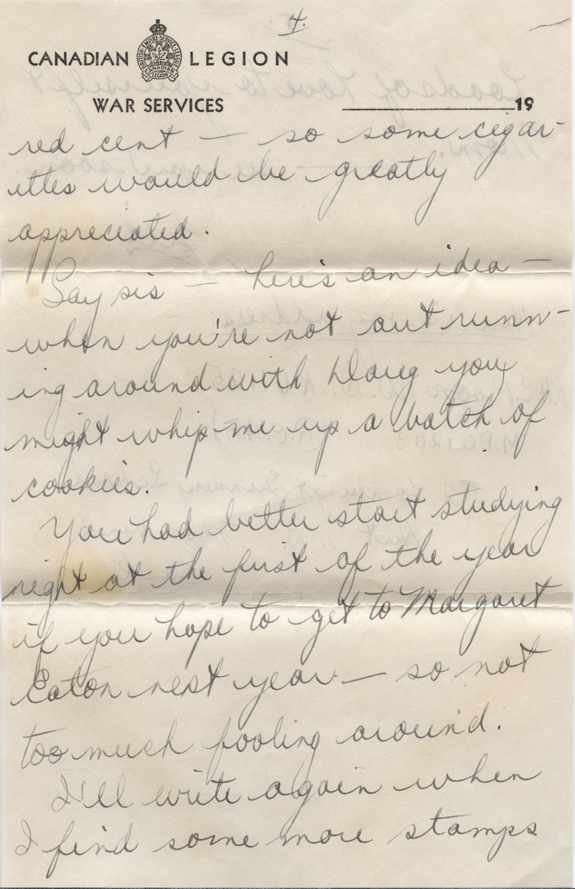 4.
CANADIAN LEGION
WAR SERVICES
19
red cent – so some cigar-
ettes would be greatly
appreciated.
Say sis – here's an idea –
when you're not out runn-
ing around with Doug you
might whip me up a batch of
cookies.
You had better start studying
right at the first of the year
if you hope to get to Margaret
Eaton nest year – so not
too much fooling around.
I'll write again when
I find some more stamps